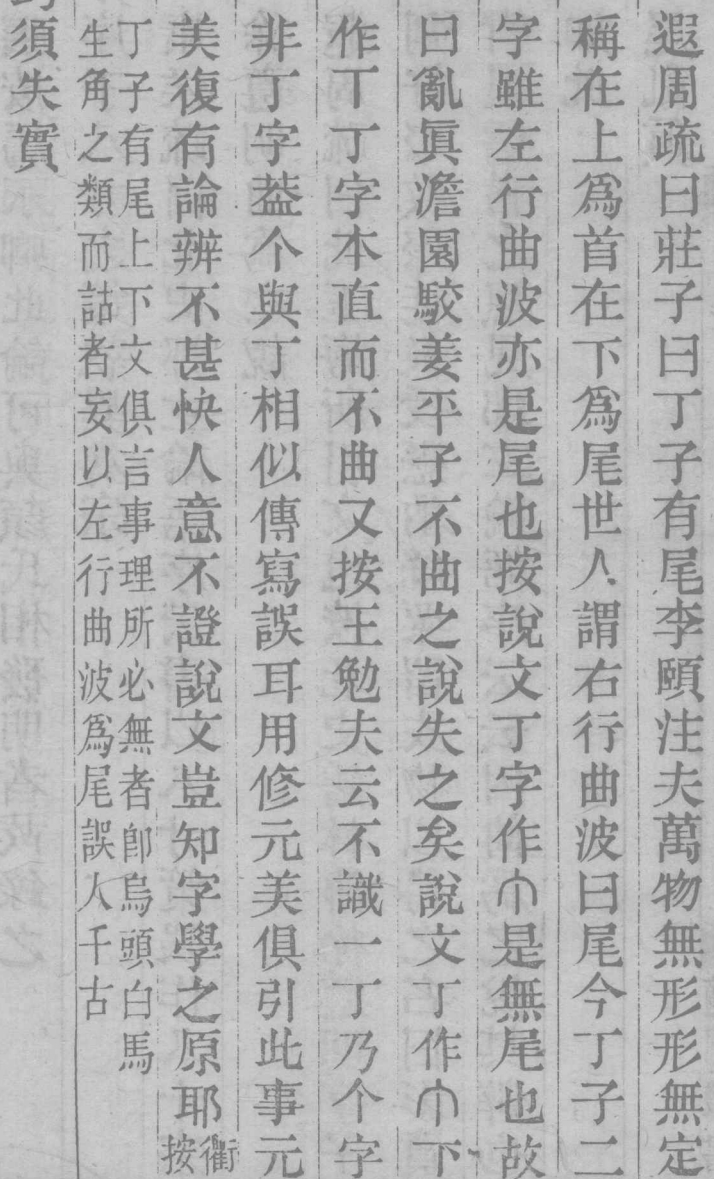 遐周疏曰莊子曰丁子有尾李頤注夫萬物無形形無定
稱在上爲首在下爲尾世人謂右行曲波曰尾今丁子二
字雖左行曲波亦是尾也按說文丁字作𠆤是無尾也故
曰亂眞澹園駮姜平子不曲之說失之矣說文丁作𠆤下
作丅丁字本直而不曲又按王勉夫云不識一丁乃个字
非丁字葢个與丁相似傳寫誤耳用修元美俱引此事元
美復有論辨不甚快人意不證說文豈知字學之原耶
衢
按
丁子有尾上下文俱言事理所必無者卽烏頭白馬
生角之類而詁者妄以左行曲波爲尾誤人千古
須失實